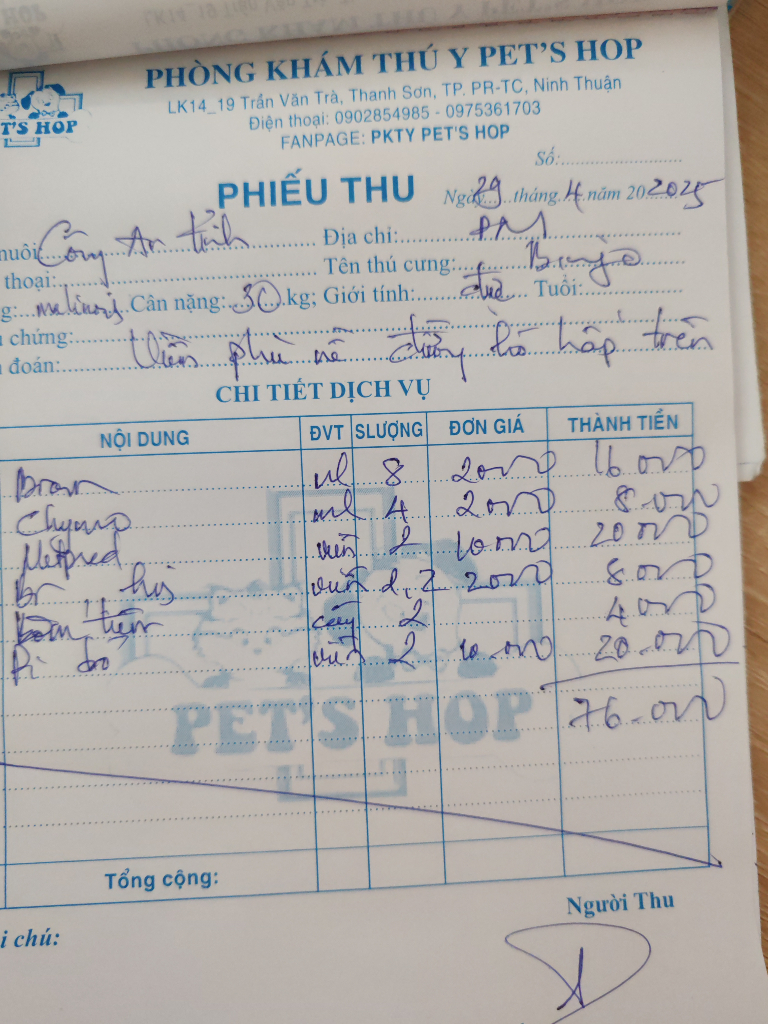 PHÒNG KHÁM THÚ Y PET'S HOP
LK14_19 Trần Văn Trà, Thanh Sơn, TP. PR-TC, Ninh Thuận
Điện thoại: 0902854985 - 0975361703
FANPAGE: PKTY PET'S HOP
T'S HOP
Số:
PHIẾU THU
Ngày 29 tháng 4 năm 20 2025
nuôi Công An tỉnh Địa chỉ: PM
thoại: Tên thú cưng: Banjo
g: malinois Cân nặng: 30 kg; Giới tính: đực Tuổi:
chứng:
đoán: Viêm phù nề đường hô hấp trên
CHI TIẾT DỊCH VỤ
NỘI DUNG ĐVT SLƯỢNG ĐƠN GIÁ THÀNH TIỀN
Brom ml 8 2000 16.000
Chymo ml 4 2000 8.000
Metpred viên 2 10.000 20.000
viên 2,2 2000 8.000
tiêm cây 2 4.000
viên 2 10.000 20.000
76.000
PET'S HOP
Tổng cộng:
Người Thu
i chú: